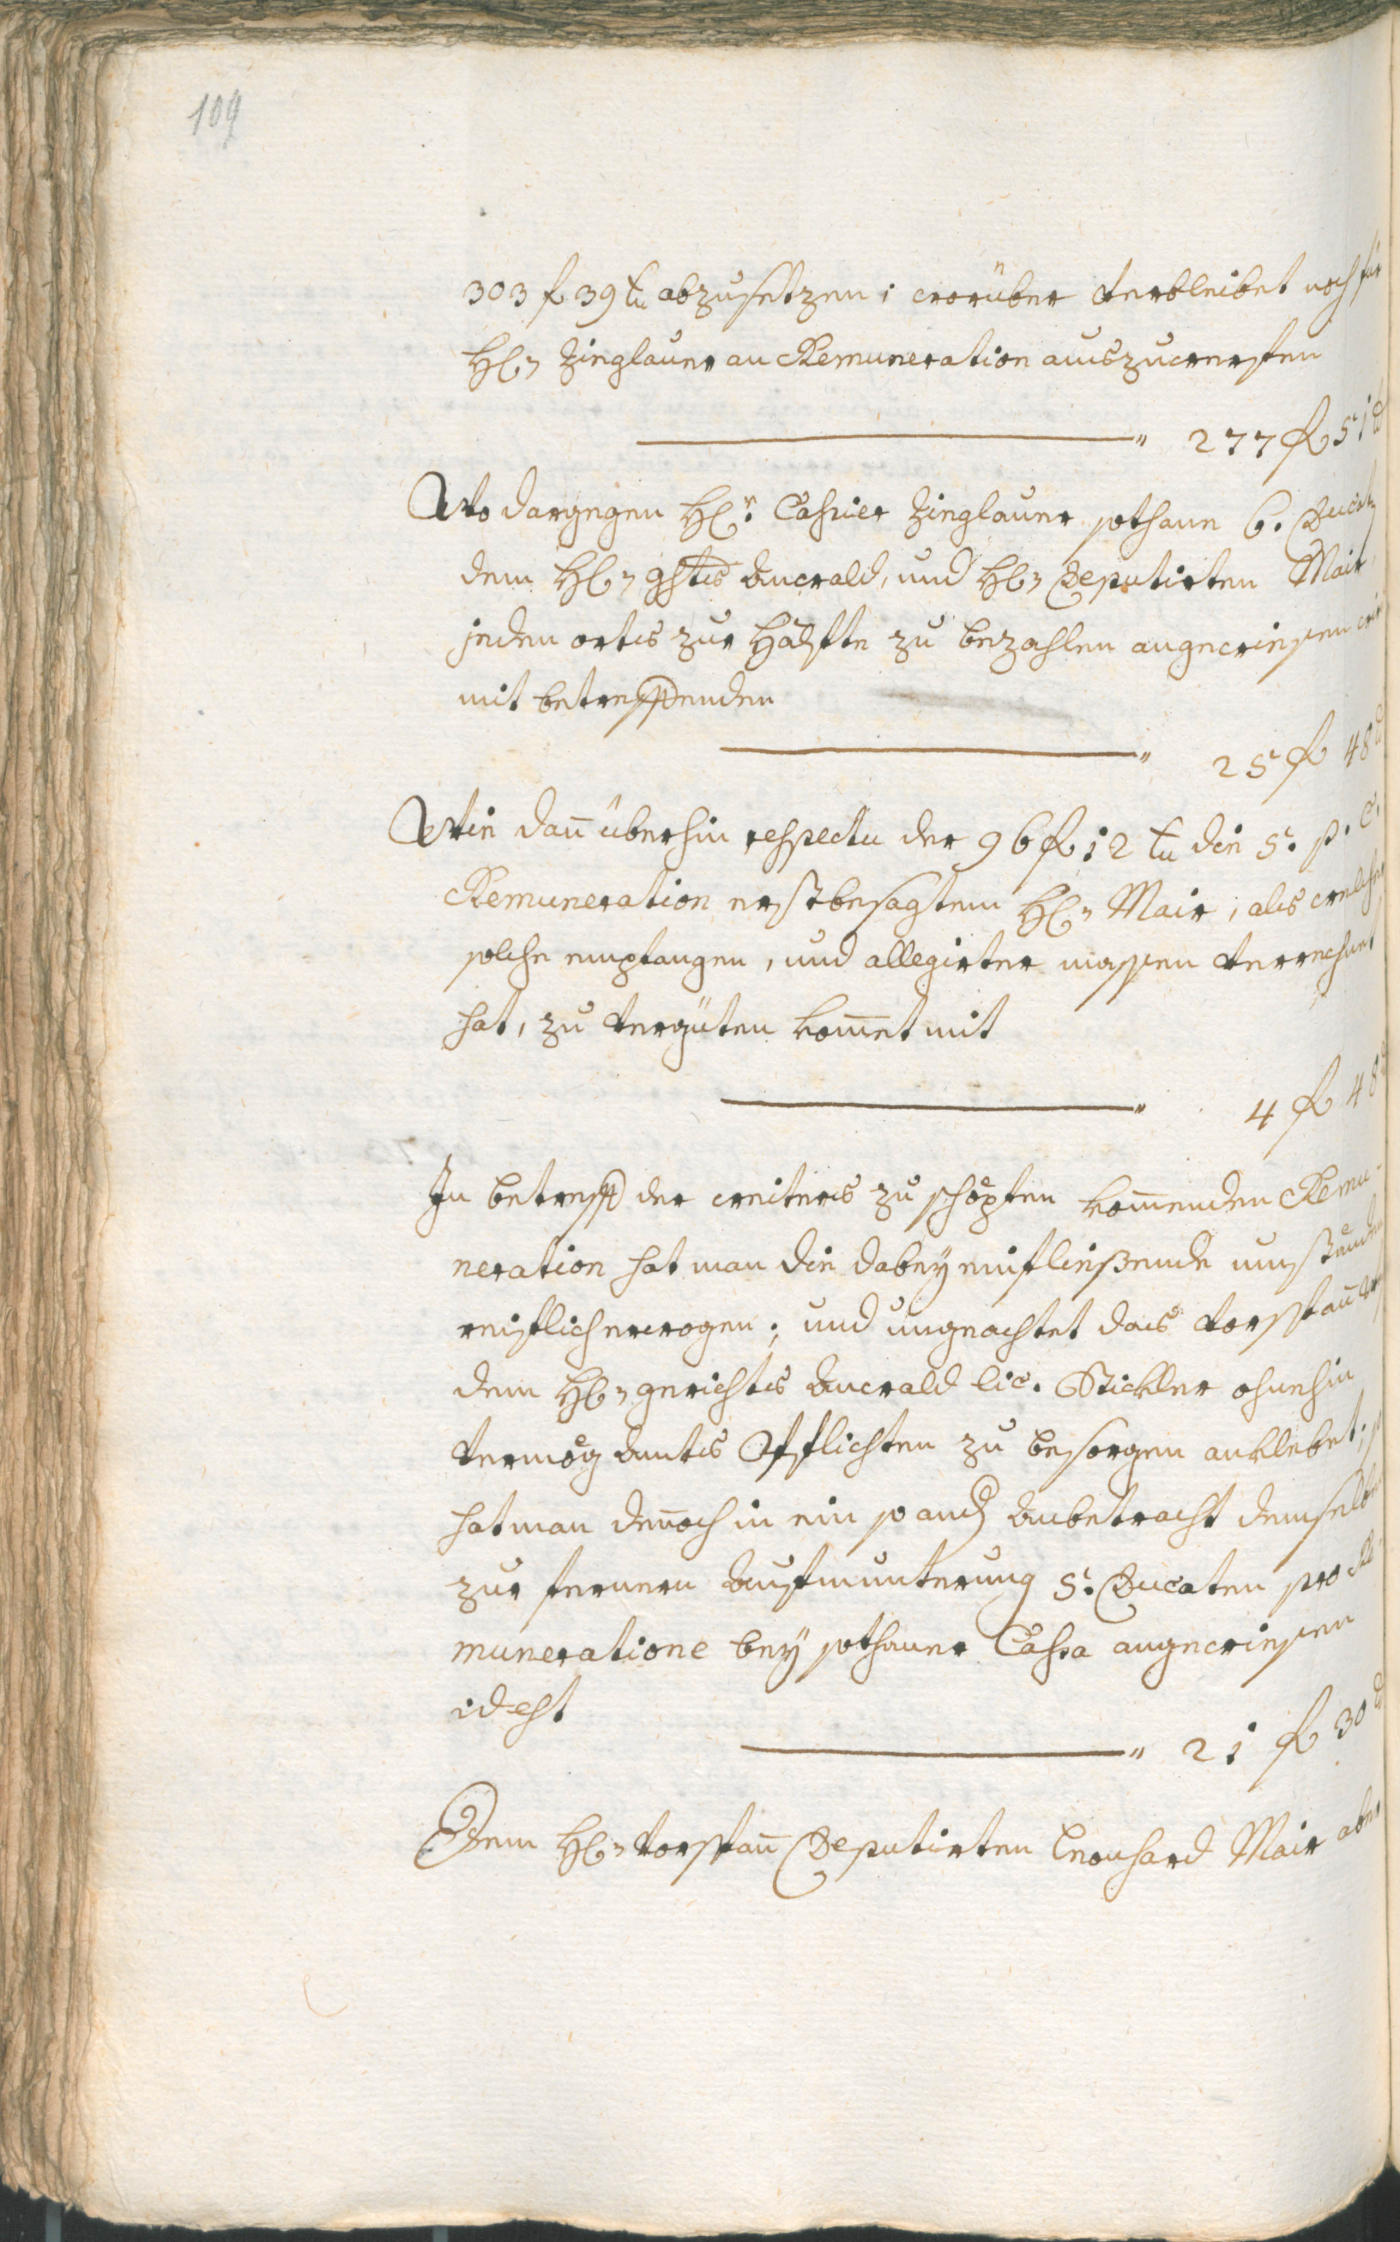 109
303 f 39 kr abzusetzen; worüber verbleibet noch für
H: Zinglauer an Remuneration auszuwerfen
" 277 f 51
Wo dargegen H:r Cassier Zinglauer sothane 6. Ducat
dem H: ghts Anwald, und H: Deputirten Mair,
jeden orts zur Hälfte zu bezahlen angewiesen
mit betreffenden
" 25 f 48
Wie dañ überhin respectu der 96 f 12 kr die 5. p: C.
Remuneration erstbesagtem H: Mair, als welcher
solche empfangen, und allegirter massen verrechnet
hat, zu vergüten kom̄et mit
" 4 f 48
In betreff der weiters zu schöpfen kom̄enden Remu-
neration hat man die dabey einfließende umstände
reiflich erwogen; und ungeachtet das Vorspann
dem H: gerichts Anwald lic. Stickler ohnehin
vermög Amts Pflichten zu besorgen anklebet; so
hat man deñoch in ein so andh Anbetracht demselben
zur fernern Aufmunterung 5. Ducaten pro Re-
muneratione bey sothaner Cassa angewiesen
id est
" 21 f 30
Dem H: Vorspañ Deputirten Leonhard Mair aber